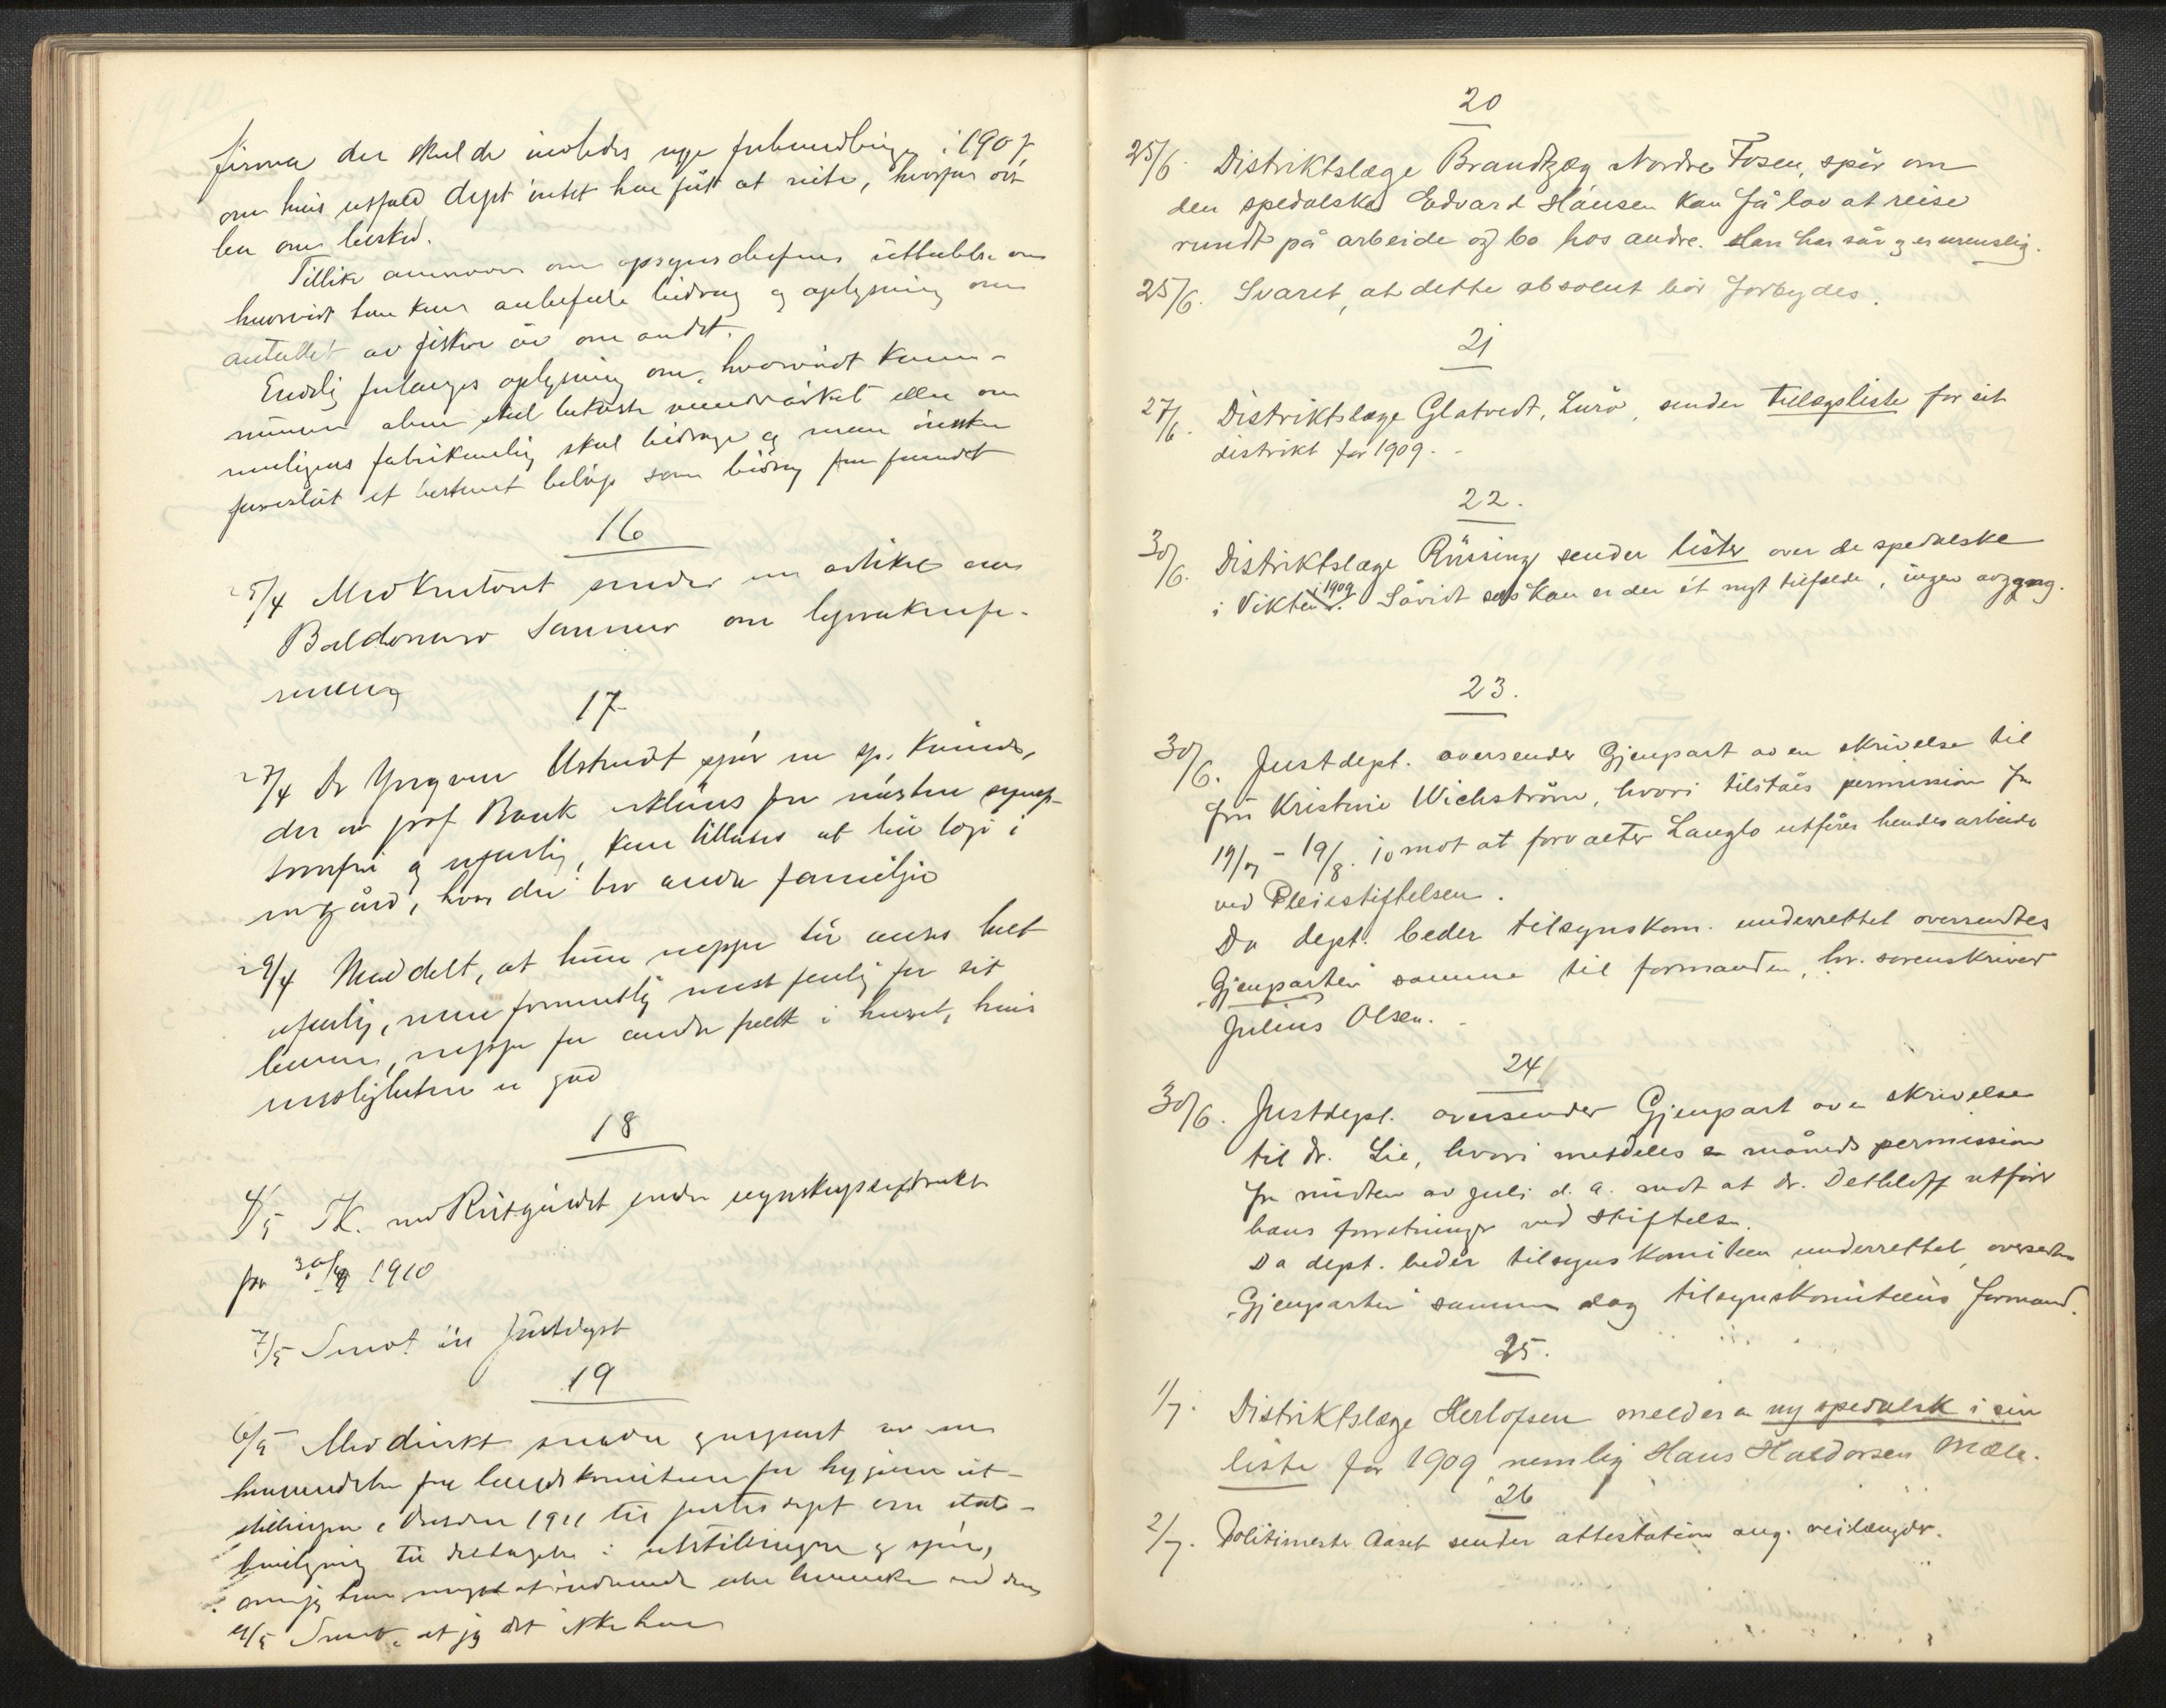 firma der skulde indledes nye forhandlinger i 1907,
om hvis utfald dept intet har fått at vite, hvorfor det
ber om besked.
Tillike anmodes om opsynschefens uttalelse om
hvorvidt han kan anbefale bidrag og oplysning om
antallet av fiskere år om andet.
Endelig forlanges oplysning om, hvorvidt kom-
munen alene skal bekoste vandverket eller om
muligens fabrikanlæg skal bidrage og man ønsker
foreslåt et bestemt beløp som bidrag fra fondet
16
25/4 Medkontoret sender en artikel av
Baldomero Sommer om leprakonfe-
rencen
17
27/4 Dr Yngvar Ustvedt spør om sp. kvinde,
der av prof Bank erklæres for næsten symp-
tomfri og ufarlig, kan tillates at bo i
en gård, hvor der bor andre familjer
29/4 Meddelt, at hun neppe bør anses helt
ufarlig, men formentlig mest farlig for sit
barn, neppe for andre folk i huset, hvis
rensligheten er god
18
4/5 TK. ved Reitgjærdet sender regnskapsextrakt
for 30/4 1910
7/5 Sendt til Justdept
19
6/5 Meddirekt sender gjenpart av en
henvendelse fra landskomiteen for hygiene ut-
stillingen i Dresden 1911 til justisdept om stats-
bevilgning til deltagelse i utstillingen og spør,
om jeg har noget at indvende eller bemerke ved den
9/5 Svart, at jeg det ikke har
20
25/6. Distriktslæge Brandtzæg Nordre Fosen, spør om
den spedalske Edvard Hansen kan få lov at reise
rundt på arbeide og bo hos andre. Han har sår og er urenslig.
25/6. Svaret, at dette absolut bör forbydes.
21
27/6. Distriktslæge Glatvedt, Lurö, sender tillægsliste for sit
distrikt for 1909. -
22.
30/6. Distriktslæge Rüsing sender lister over de spedalske
i Vikten i 1909. Såvidt sees kan er der ét nyt tilfælde, ingen avgang.
23.
30/6. Justdept. oversender Gjenpart av en skrivelse til
frk Kristine Wichström, hvori tilståes permission fra
19/7 - 19/8. 10 mot at forvalter Langlo utfører hendes arbeide
ved Pleiestiftelsen.
Da dept. beder tilsynskom. underrettet oversendtes
Gjenparten samme til formanden, hr. sorenskriver
Julius Olsen. -
24
30/6. Justdept. oversender Gjenpart av en skrivelse
til dr. Lie, hvori meddeles en måneds permission
fra midten av juli d. a. mot at dr. Dethloff utfører
hans forretninger ved stiftelsen.
Da dept. beder tilsynskomiteen underrettet, oversendtes
Gjenparten samme dag tilsynskomiteens formand.
25.
1/7. Distriktslæge Herlofsen melder en ny spedalsk i sin
liste for 1909 nemlig Hans Haldorsen Mæle.
26
2/7. Politimester Aaset sender attestation ang. veilængder.